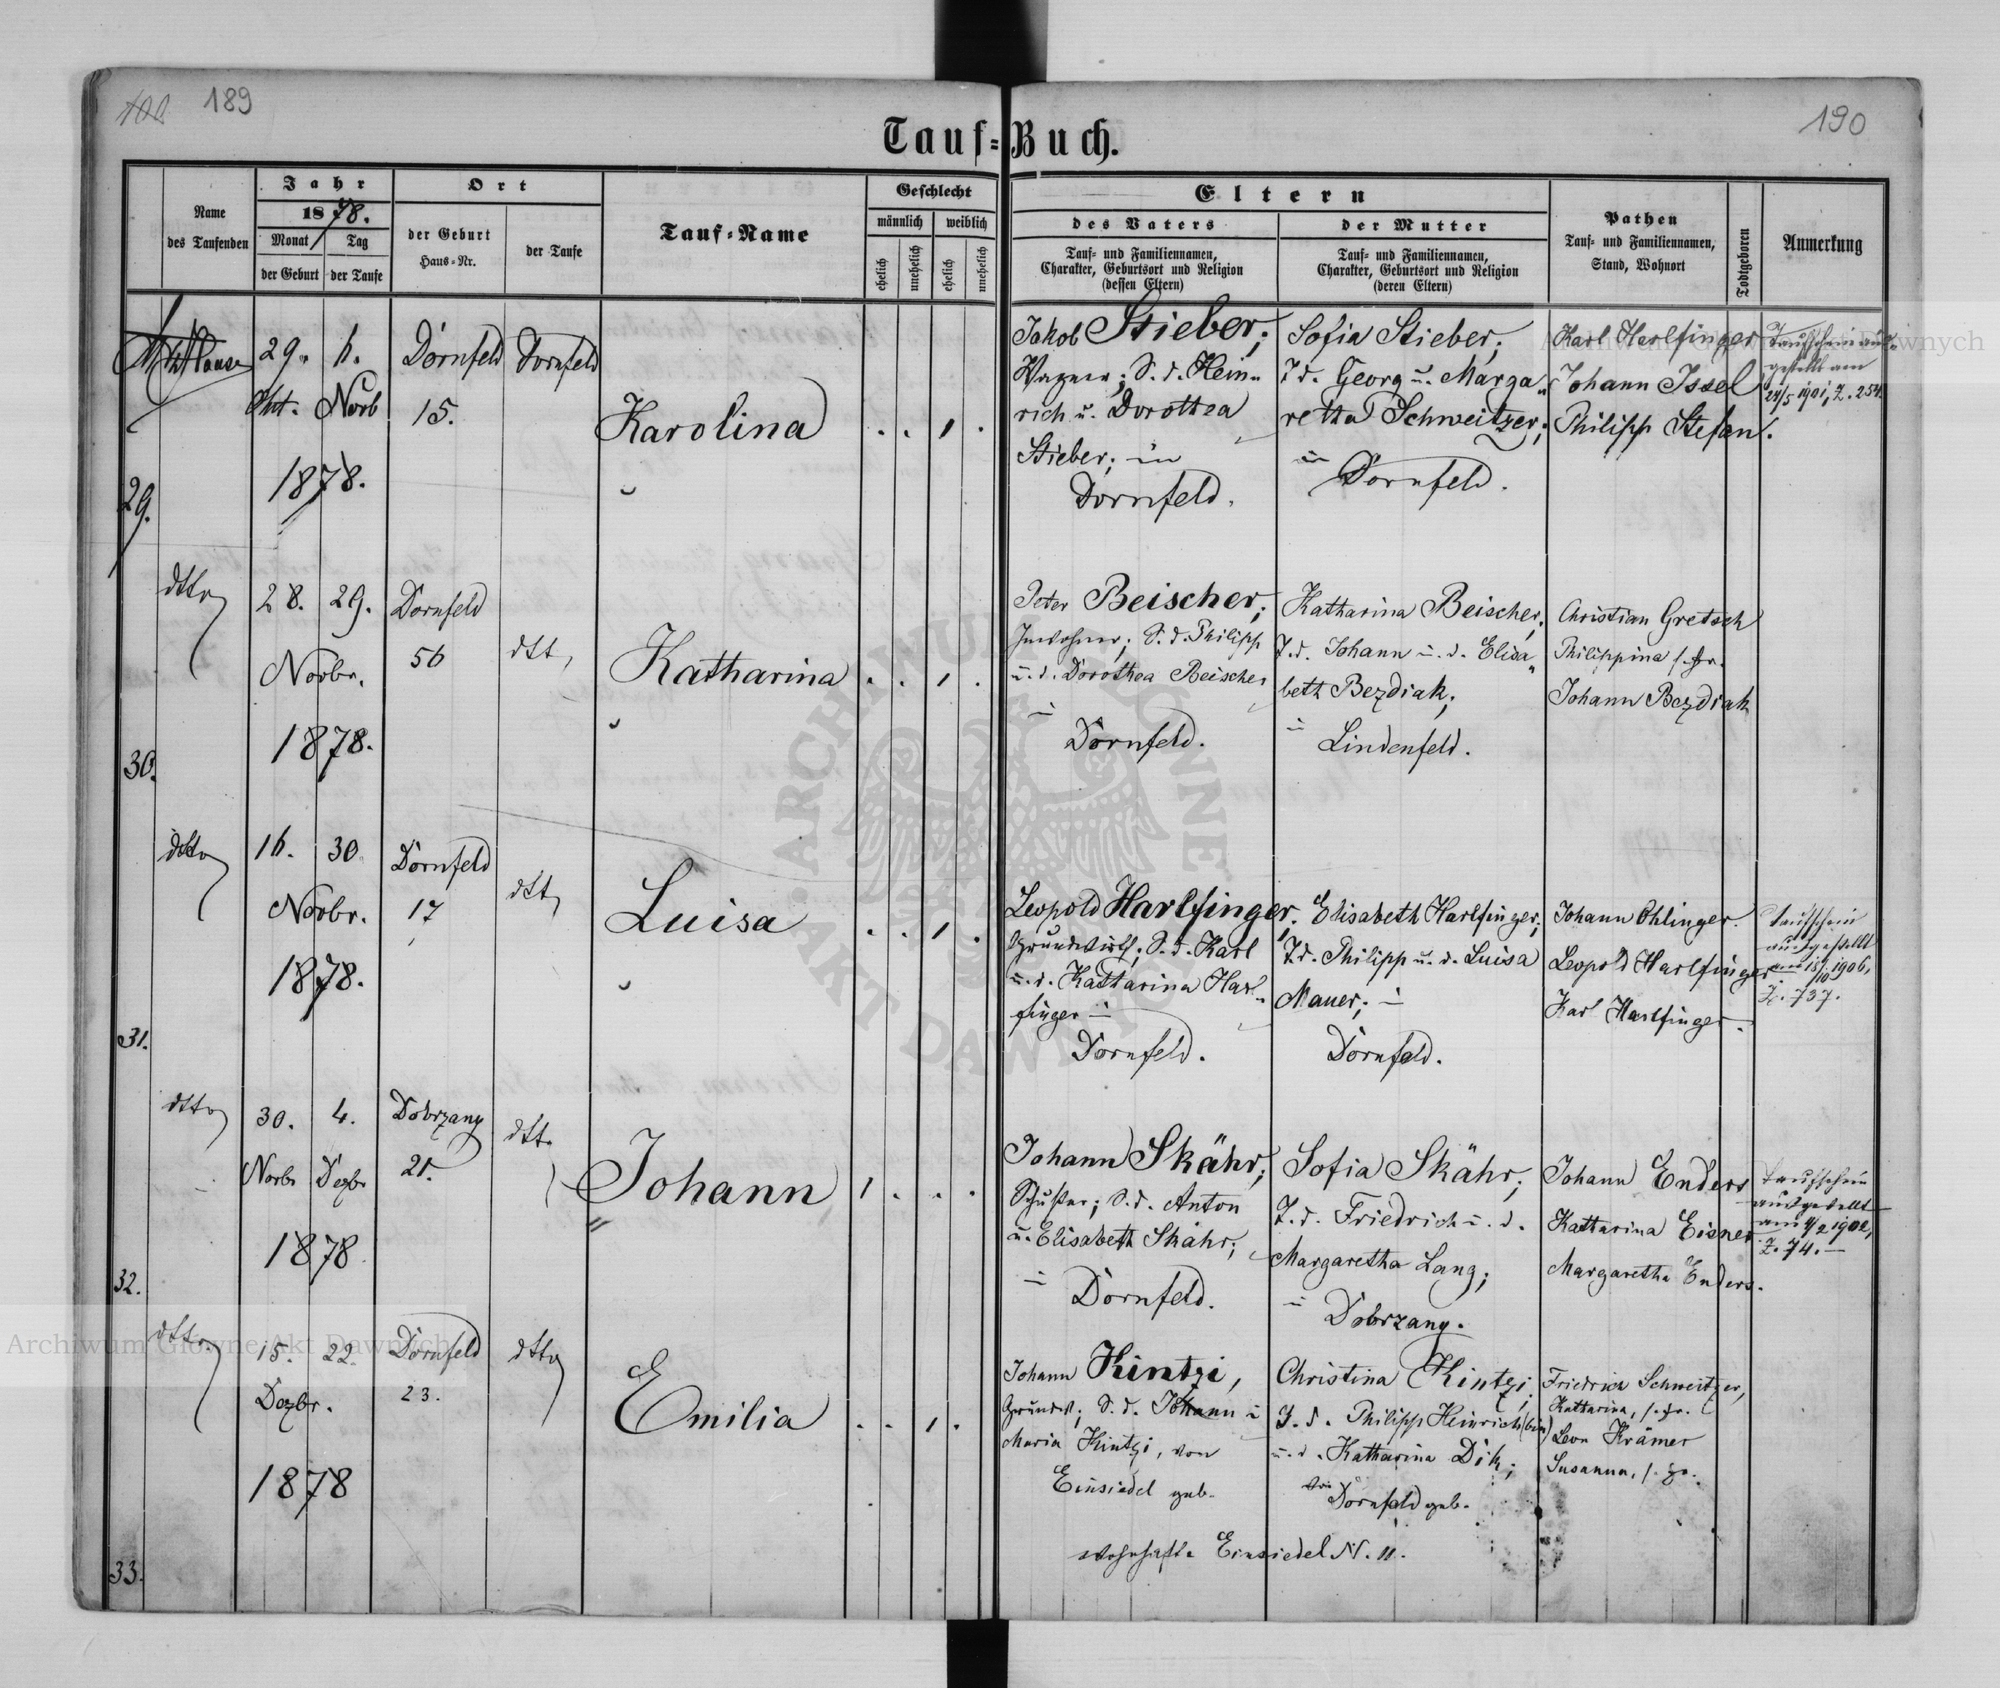 189
190
Tauf-Buch.
Name
des Taufenden
Jahr
1878.
Monat
Tag
der Geburt
der Taufe
Ort
der Geburt
Haus-Nr.
der Taufe
Tauf-Name
Geschlecht
männlich
weiblich
ehelich
unehelich
ehelich
unehelich
Eltern
des Vaters
Tauf- und Familiennamen,
Charakter, Geburtsort und Religion
(dessen Eltern)
der Mutter
Tauf- und Familiennamen,
Charakter, Geburtsort und Religion
(deren Eltern)
Pathen
Tauf- und Familiennamen,
Stand, Wohnort
Todtgeboren
Anmerkung
29.
29. 6.
Okt. Novb
1878.
Dornfeld
15.
Dornfeld
Karolina
. . 1 .
Jakob Stieber,
Wagner; S. d. Hein-
rich u. Dorothea
Stieber; in
Dornfeld.
Sofia Stieber,
T. d. Georg u. Marga-
retha Schweitzer;
in
Dornfeld.
Karl Harlfinger
Johann Issel
Philipp Stefan.
Taufschein aus-
gestellt am
24/5 1901, Z. 254.
30.
dtto
28. 29.
Novbr.
1878.
Dornfeld
56
dtt,
Katharina
. . 1 .
Peter Beischer,
Inwohner; S. d. Philipp
u. d. Dorothea Beischer
in
Dornfeld.
Katharina Beischer,
T. d. Johann u. d. Elisa-
beth Bezdiak;
in
Lindenfeld.
Christian Gretsch
Philippina s. Fr.
Johann Bezdiak
31.
dtto
16. 30
Novbr.
1878.
Dornfeld
17
dtt,
Luisa
. . 1 .
Leopold Harlfinger,
Grundwirth; S. d. Karl
u. d. Katharina Harl-
finger in
Dornfeld.
Elisabeth Harlfinger;
T. d. Philipp u. d. Luisa
Mauer; in
Dornfeld.
Johann Ohlinger
Leopold Harlfinger
Karl Harlfinger.
Taufschein
ausgestellt
am 18/10 1906,
Z. 737.
32.
dtto
30. 4.
Novbr Dezbr
1878
Dobrzany
21.
dtt.
Johann
1 . . .
Johann Skähr;
Schuster; S. d. Anton
u. Elisabeth Skähr;
in
Dornfeld.
Sofia Skähr;
T. d. Friedrich u. d.
Margaretha Lang;
in
Dobrzany.
Johann Enders
Katharina Eisner
Margaretha Enders.
Taufschein
ausgestellt
am 4/2 1902,
Z. 74.
33.
dtto
15. 22.
Dezbr.
1878
Dornfeld
23.
dtto
Emilia
. . 1 .
Johann Kintzi,
Grundw.; S. d. Johann u
Maria Kintzi, von
Einsiedel geb.
Christina Kintzi,
T. d. Philipp Heinrich
u. d. Katharina Dik;
von
Dornfeld geb.
wohnhaft Einsiedel N. 11.
Friedrich Schweitzer,
Katharina, s. Fr.
Leon Krämer
Susanna, s. Fr.
Archiwum Główne Akt Dawnych
Archiwum Główne Akt Dawnych
ARCHIWUM GŁÓWNE AKT DAWNYCH